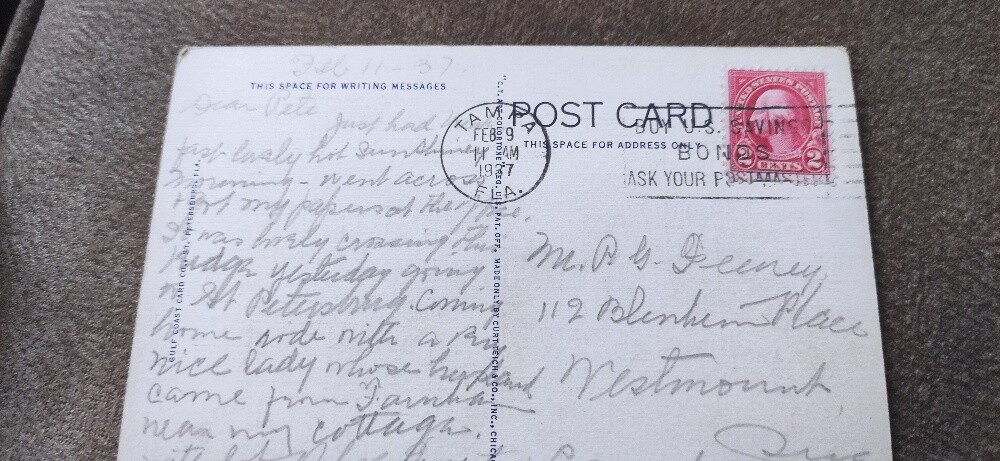 Feb 11-37.
THIS SPACE FOR WRITING MESSAGES
Dear Pete
Just had
hot Sunshine
morning - went across
my papers at the office.
It was lovely crossing the
bridge yesterday going
to St Petersburg. Coming
home rode with a
nice lady whose husband
came from Farnham
near my cottage.
GULF COAST CARD CO., ST. PETERSBURG, FLA.
"C.T. ART-COLORTONE" REG. U.S. PAT. OFF. MADE ONLY BY CURT TEICH & CO., INC., CHICA
POST CARD
THIS SPACE FOR ADDRESS ONLY
TAMPA
FEB 9
11 AM
1937
FLA.
BUY U.S. SAVINGS
BONDS
ASK YOUR POSTMASTER
UNITED STATES POSTAGE
2 CENTS 2
Mr. P. G. Feeney
112 Blenheim Place
Westmount
Que